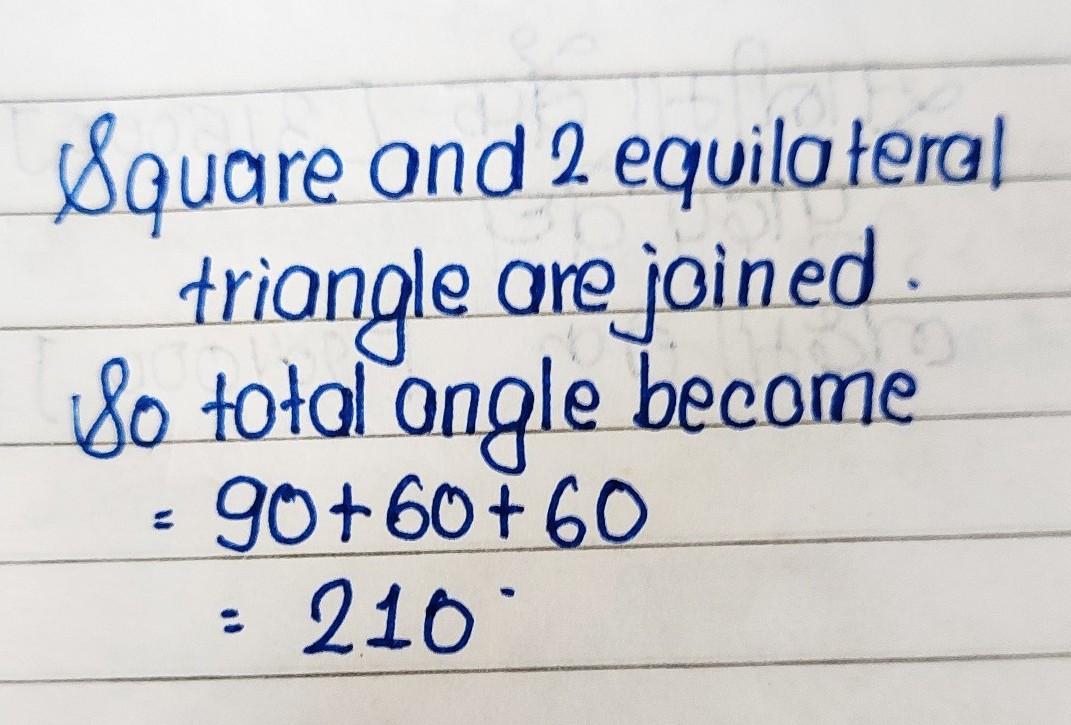 Square and 2 equilateral
triangle are joined.
So total angle become
= 90+60+60
= 210°